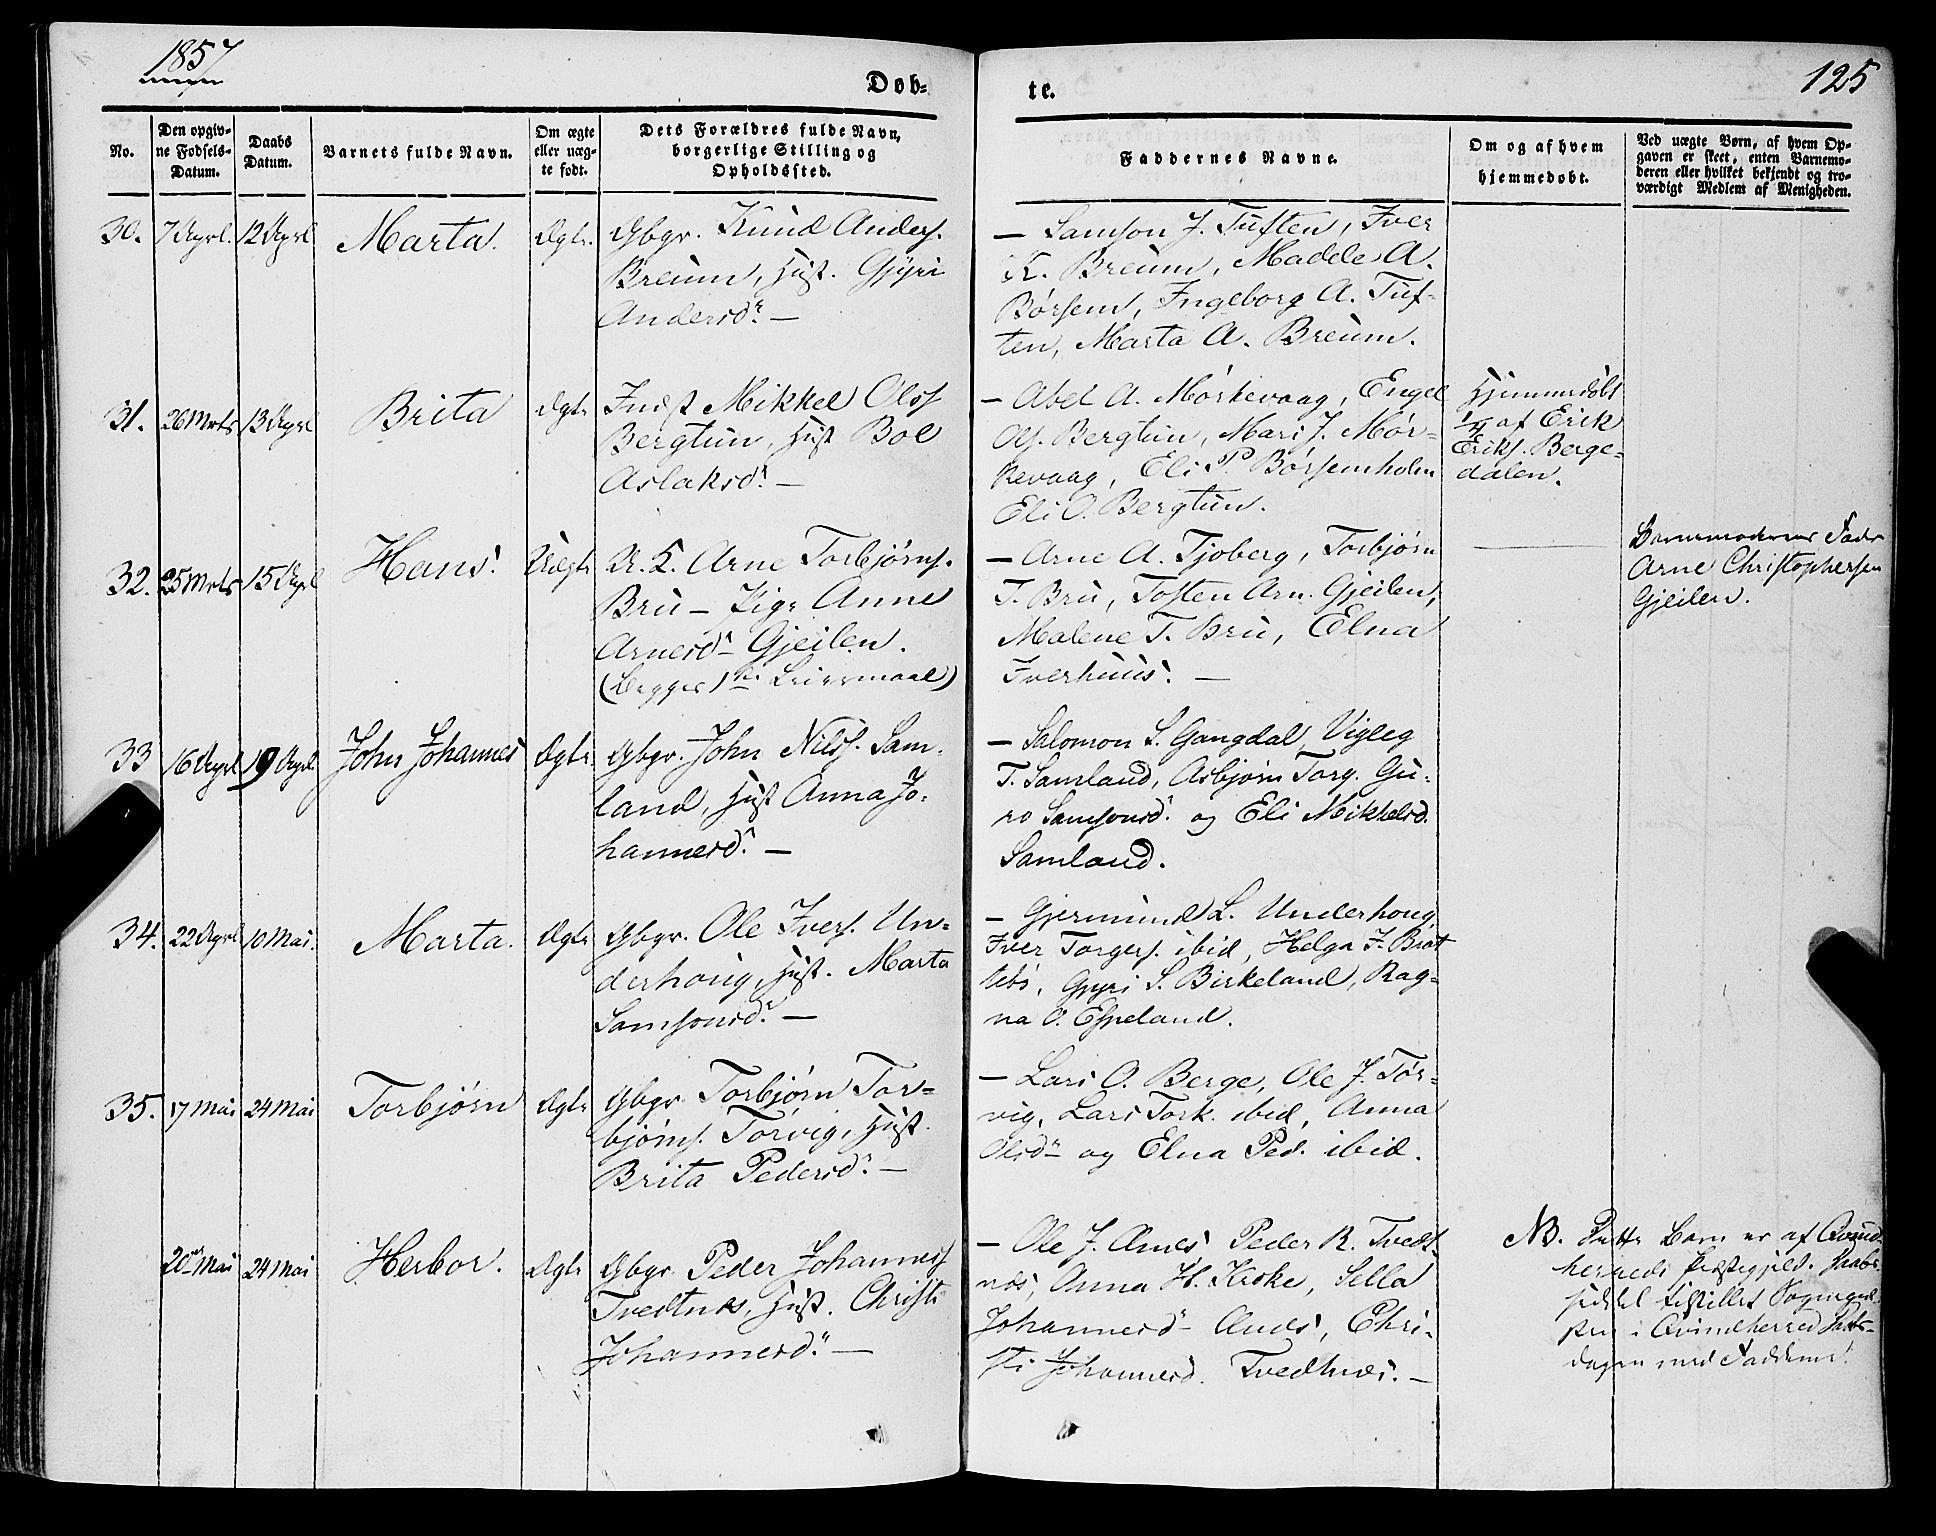 1857
Døb-
te.
125
No.
Den opgiv-
ne Fødsels-
Datum.
Daabs
Datum.
Barnets fulde Navn.
Om ægte
eller uæg-
te født.
Dets Forældres fulde Navn,
borgerlige Stilling og
Opholdssted.
Faddernes Navne.
Om og af hvem
hjemmedøbt.
Ved uægte Børn, af hvem Op-
gaven er skeet, enten Barnemo-
deren eller hvilket bekjendt og tro-
værdigt Medlem af Menigheden.
30. 7 April. 12 April Marta. Ægte. Gbgr. Knud Anders.
Breum, Hust. Gjyri
Andersdr. —
— Samson J. Tuften, Iver
K. Breum, Madele A.
Børsem, Ingeborg A. Tuf-
ten, Marta A. Breum.
31. 26 Mrts 13 April Brita Ægte Indst Mikkel Olss
Bergtun, Hust Boe
Aslaksd. —
— Abel A. Mørkevaag, Engel
Ols. Bergtun, Mari J. Mør-
kevaag, Eli P. Børsemholm
Eli O. Bergtun.
Hjemmedøbt
1/4 af Erik
Eriks. Berge-
dalen.
32. 25 Mrts 15 April Hans. Uægte U. K. Arne Torbjørns.
Bru — Pige Anne
Arnesd. Gjeilen.
(Begges 1ste Leiermaal)
— Arne A. Tjoberg, Torbjørn
T. Bru, Tosten Arn. Gjeilen,
Malene T. Bru, Elna
Iverhuus. —
Barnemoderens Fader
Arne Christophersen
Gjeilen.
33 16 April 19 April John Johannes Ægte. Gbgr. John Nilss. Sam-
land, Hust Anna Jo-
hannesd. —
— Salomon S. Gangdal, Vigleg
T. Samland, Asbjørn Torg. Gu-
ro Samsonsd. og Eli Mikkelsd.
Samland.
34. 22 April 10 Mai. Marta. Ægte Gbgr. Ole Ivers. Un-
derhoug, Hust. Marta
Samsonsd. —
— Gjermund L. Underhoug
Iver Torgers. ibid, Helga I. Brat
tebø, Gyri S. Birkeland, Rag-
na O. Espeland.
35. 17 Mai 24 Mai Torbjørn Ægte Gbgr. Torbjørn Tor-
bjørns. Tørvig, Hust.
Brita Pedersd. —
— Lars O. Berge, Ole J. Tør-
vig, Lars Tork. ibid, Anna
Olsdr og Elna Ped. ibid.
20 Mai 24 Mai Herbor. Ægte Gbgr. Peder Johanness
Tvedtnæs, Hust. Christi
Johannesd. —
— Ole J. Anes Peder R. Tvedt-
næs, Anna H. Kroke, Sella
Johannesd Anes, Chri-
sti Johannesd. Tvedtnæs. —
NB. Dette Barn er af Qvind-
herreds Præstegjeld. Daabs-
seddel tilstillet Sognepræ-
sten i Qvindherred Daabs-
dagen med Fadderne.